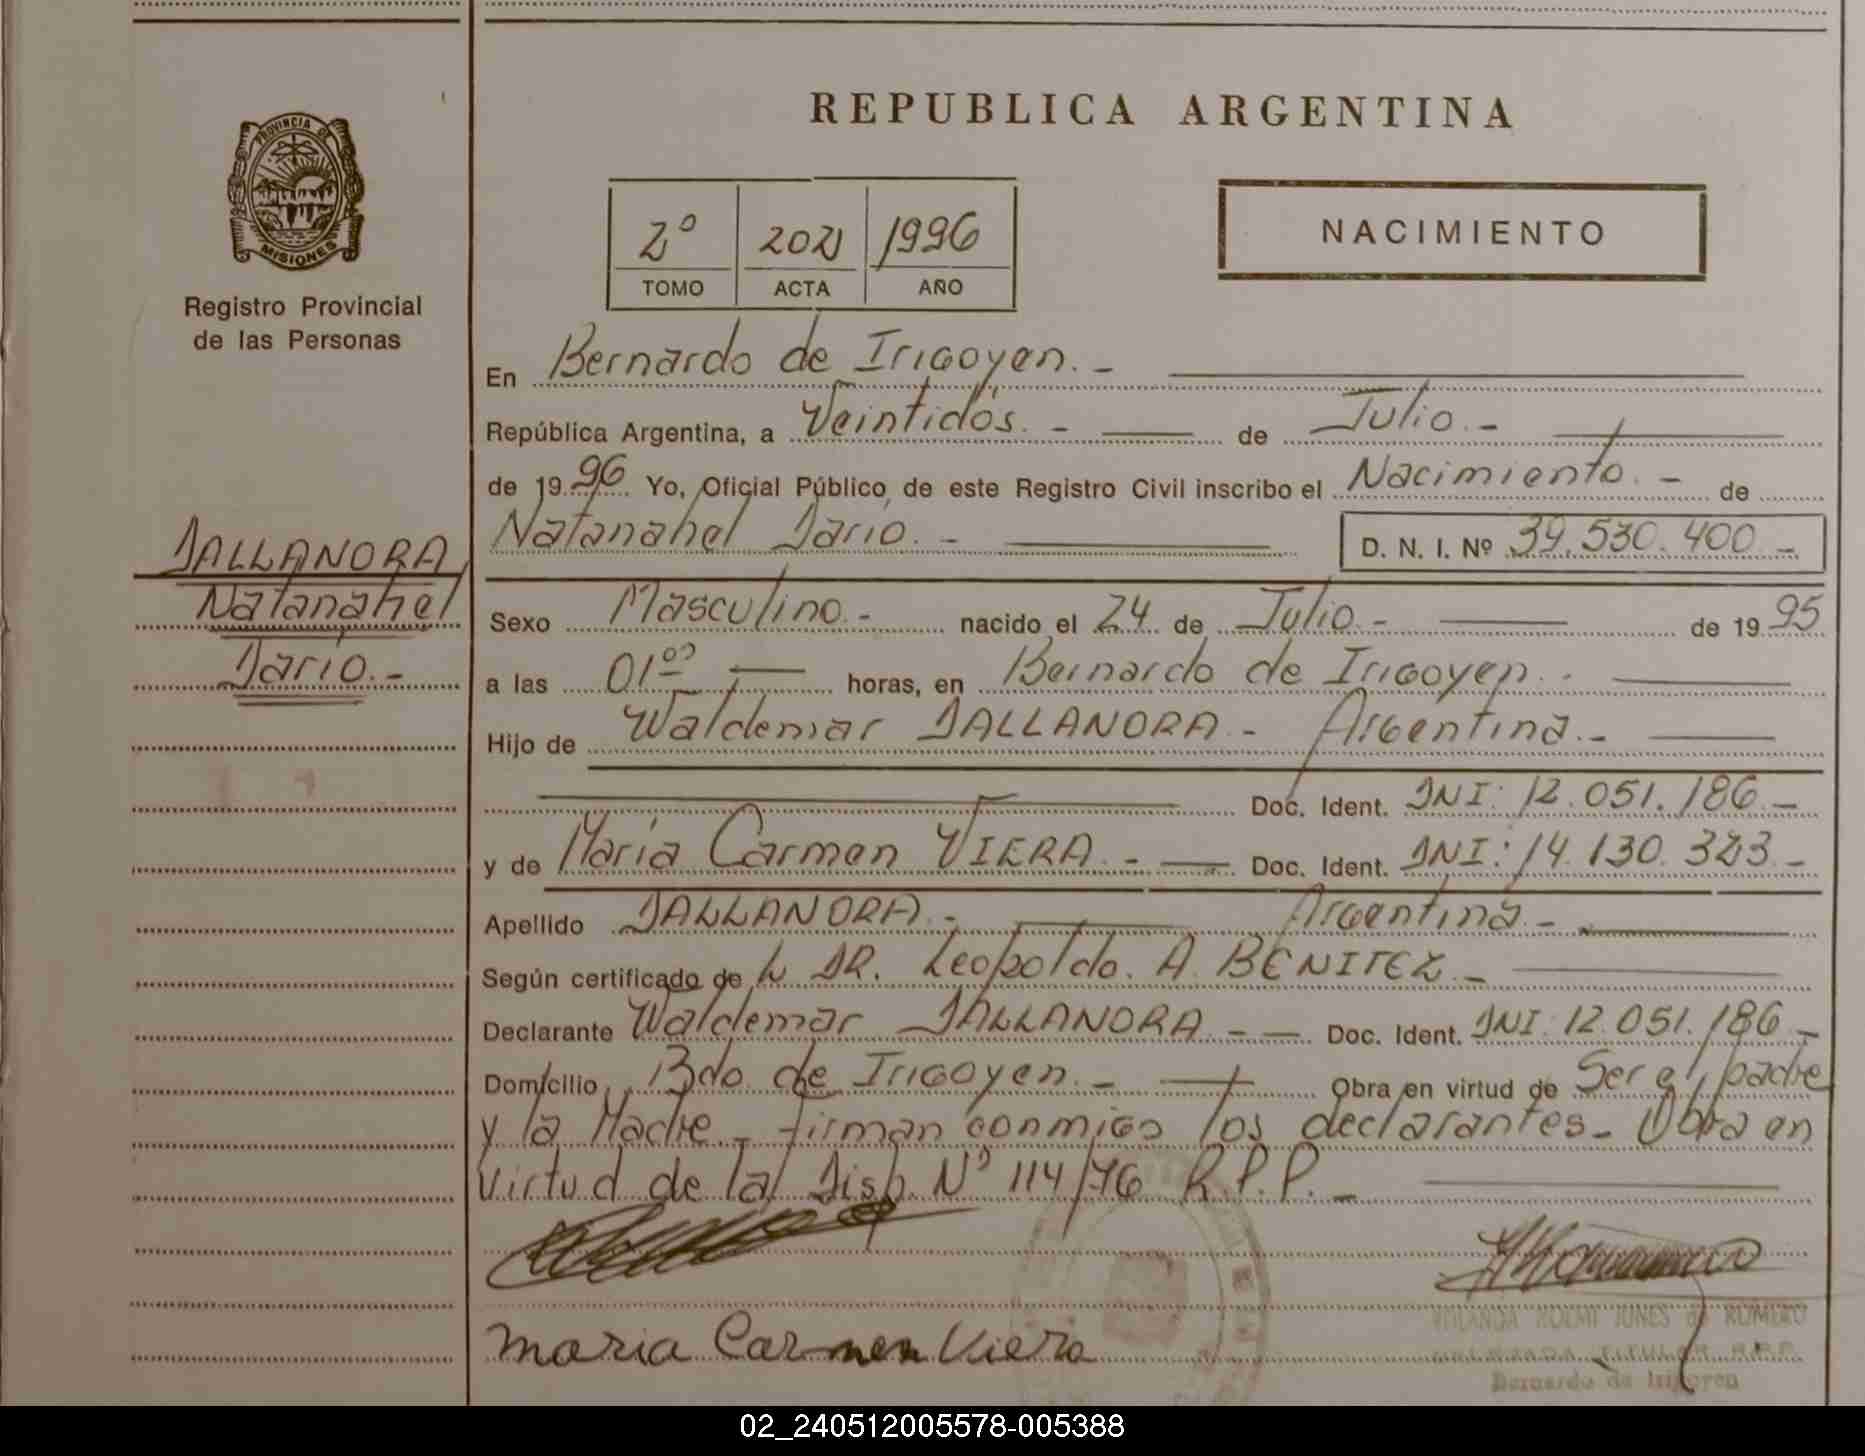 REPUBLICA ARGENTINA
PROVINCIA DE
MISIONES
Registro Provincial
de las Personas
2º 202 1996
TOMO ACTA AÑO
NACIMIENTO
En Bernardo de Irigoyen.-
República Argentina, a Veintidós.- de Julio.-
de 1996 Yo, Oficial Público de este Registro Civil inscribo el Nacimiento.- de
Natanahel Dario.- D. N. I. Nº 39.530.400-
DALLANORA
Natanahel
Dario.-
Sexo Masculino.- nacido el 24 de Julio.- de 1995
a las 01ºº horas, en Bernardo de Irigoyen.-
Hijo de Waldemar DALLANORA- Argentina.-
Doc. Ident. DNI: 12.051.186-
y de María Carmen VIERA.- Doc. Ident. DNI: 14.130.323-
Apellido DALLANORA- Argentina.-
Según certificado de DR. Leopoldo. A. BENITEZ-
Declarante Waldemar DALLANORA- Doc. Ident. DNI 12.051.186-
Domicilio Bdo. de Irigoyen.- Obra en virtud de Ser el padre
y la Madre- firman conmigo los declarantes- Obra en
virtud de la Disp. Nº 114/76 R.P.P.-
Maria Carmen Viera
YOLANDA NOEMI JUNES de ROMERO
TITULAR R.P.P.
Bernardo de Irigoyen
02_240512005578-005388